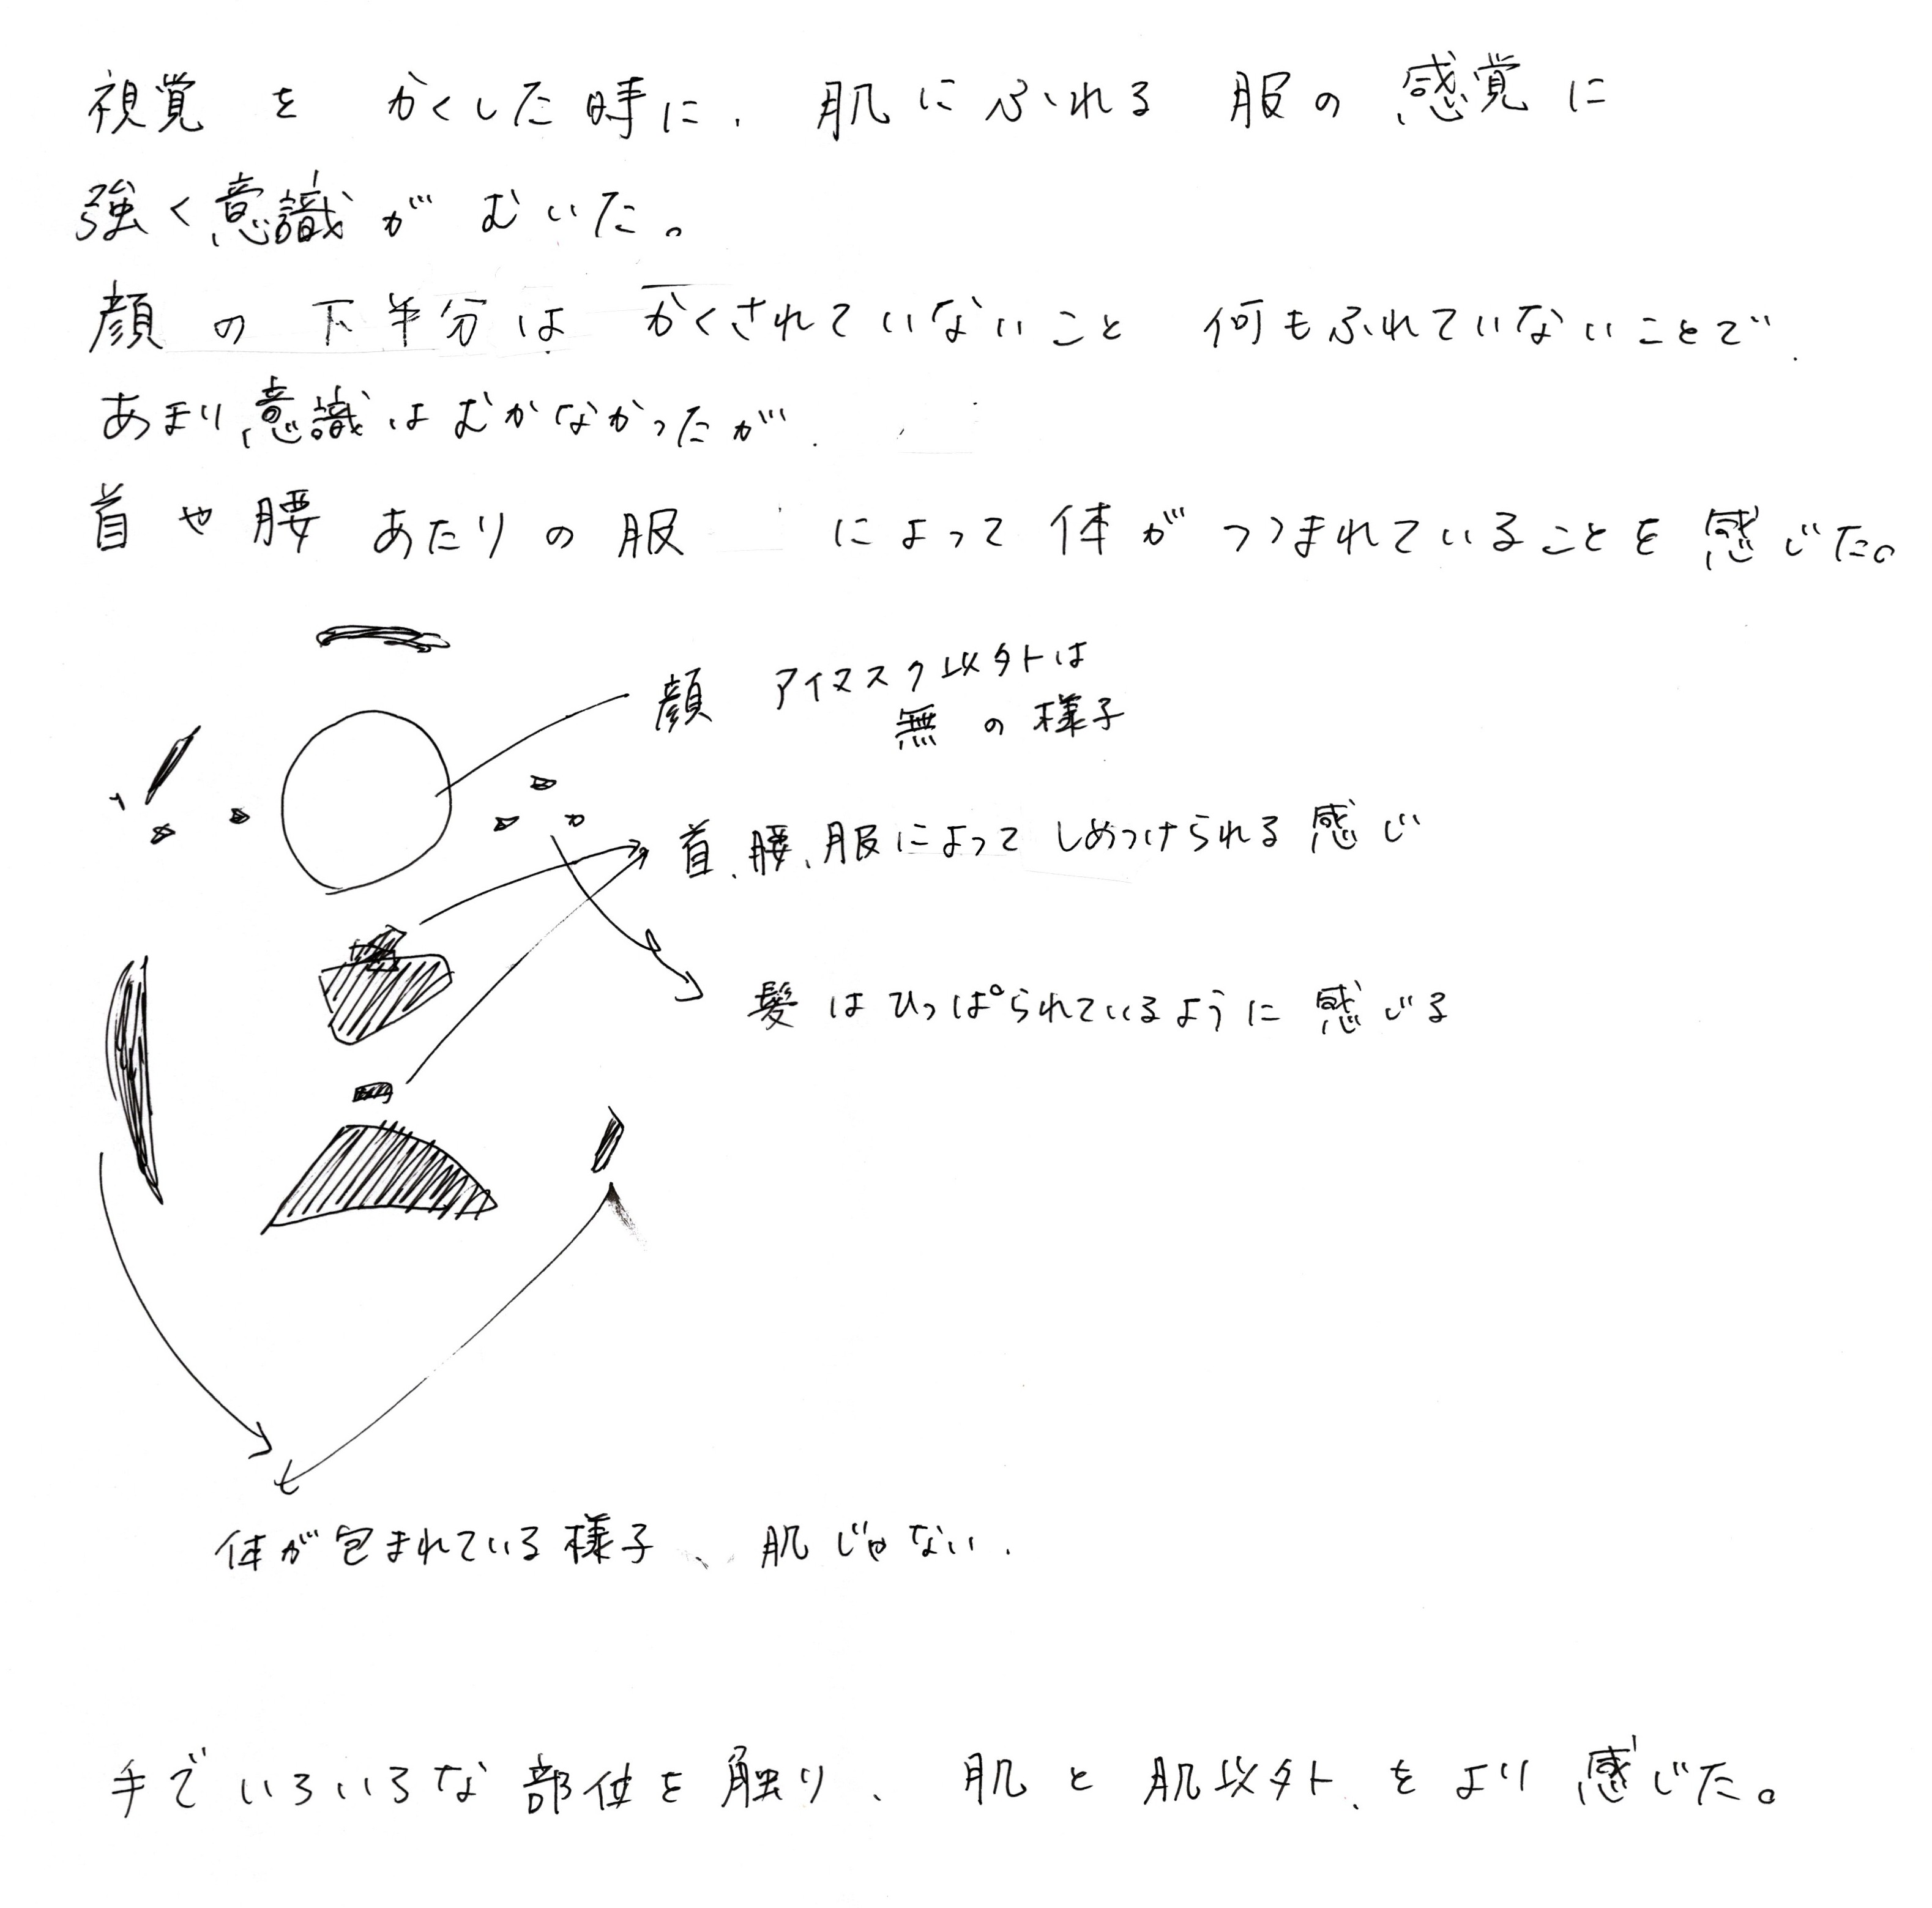 視覚を かくした時に、肌にふれる 服の 感覚に
強く意識が むいた。
顔の下半分は かくされていないこと 何もふれていないことで、
あまり意識はむかなかったが、
首や腰 あたりの服 によって体が つつまれていることを感じた。
顔 アイマスク以外は
無の様子
首、腰、服によって しめつけられる感じ
髪はひっぱられているように感じる
体が包まれている様子、肌じゃない、
手でいろいろな部位を触り、肌と肌以外、をより感じた。